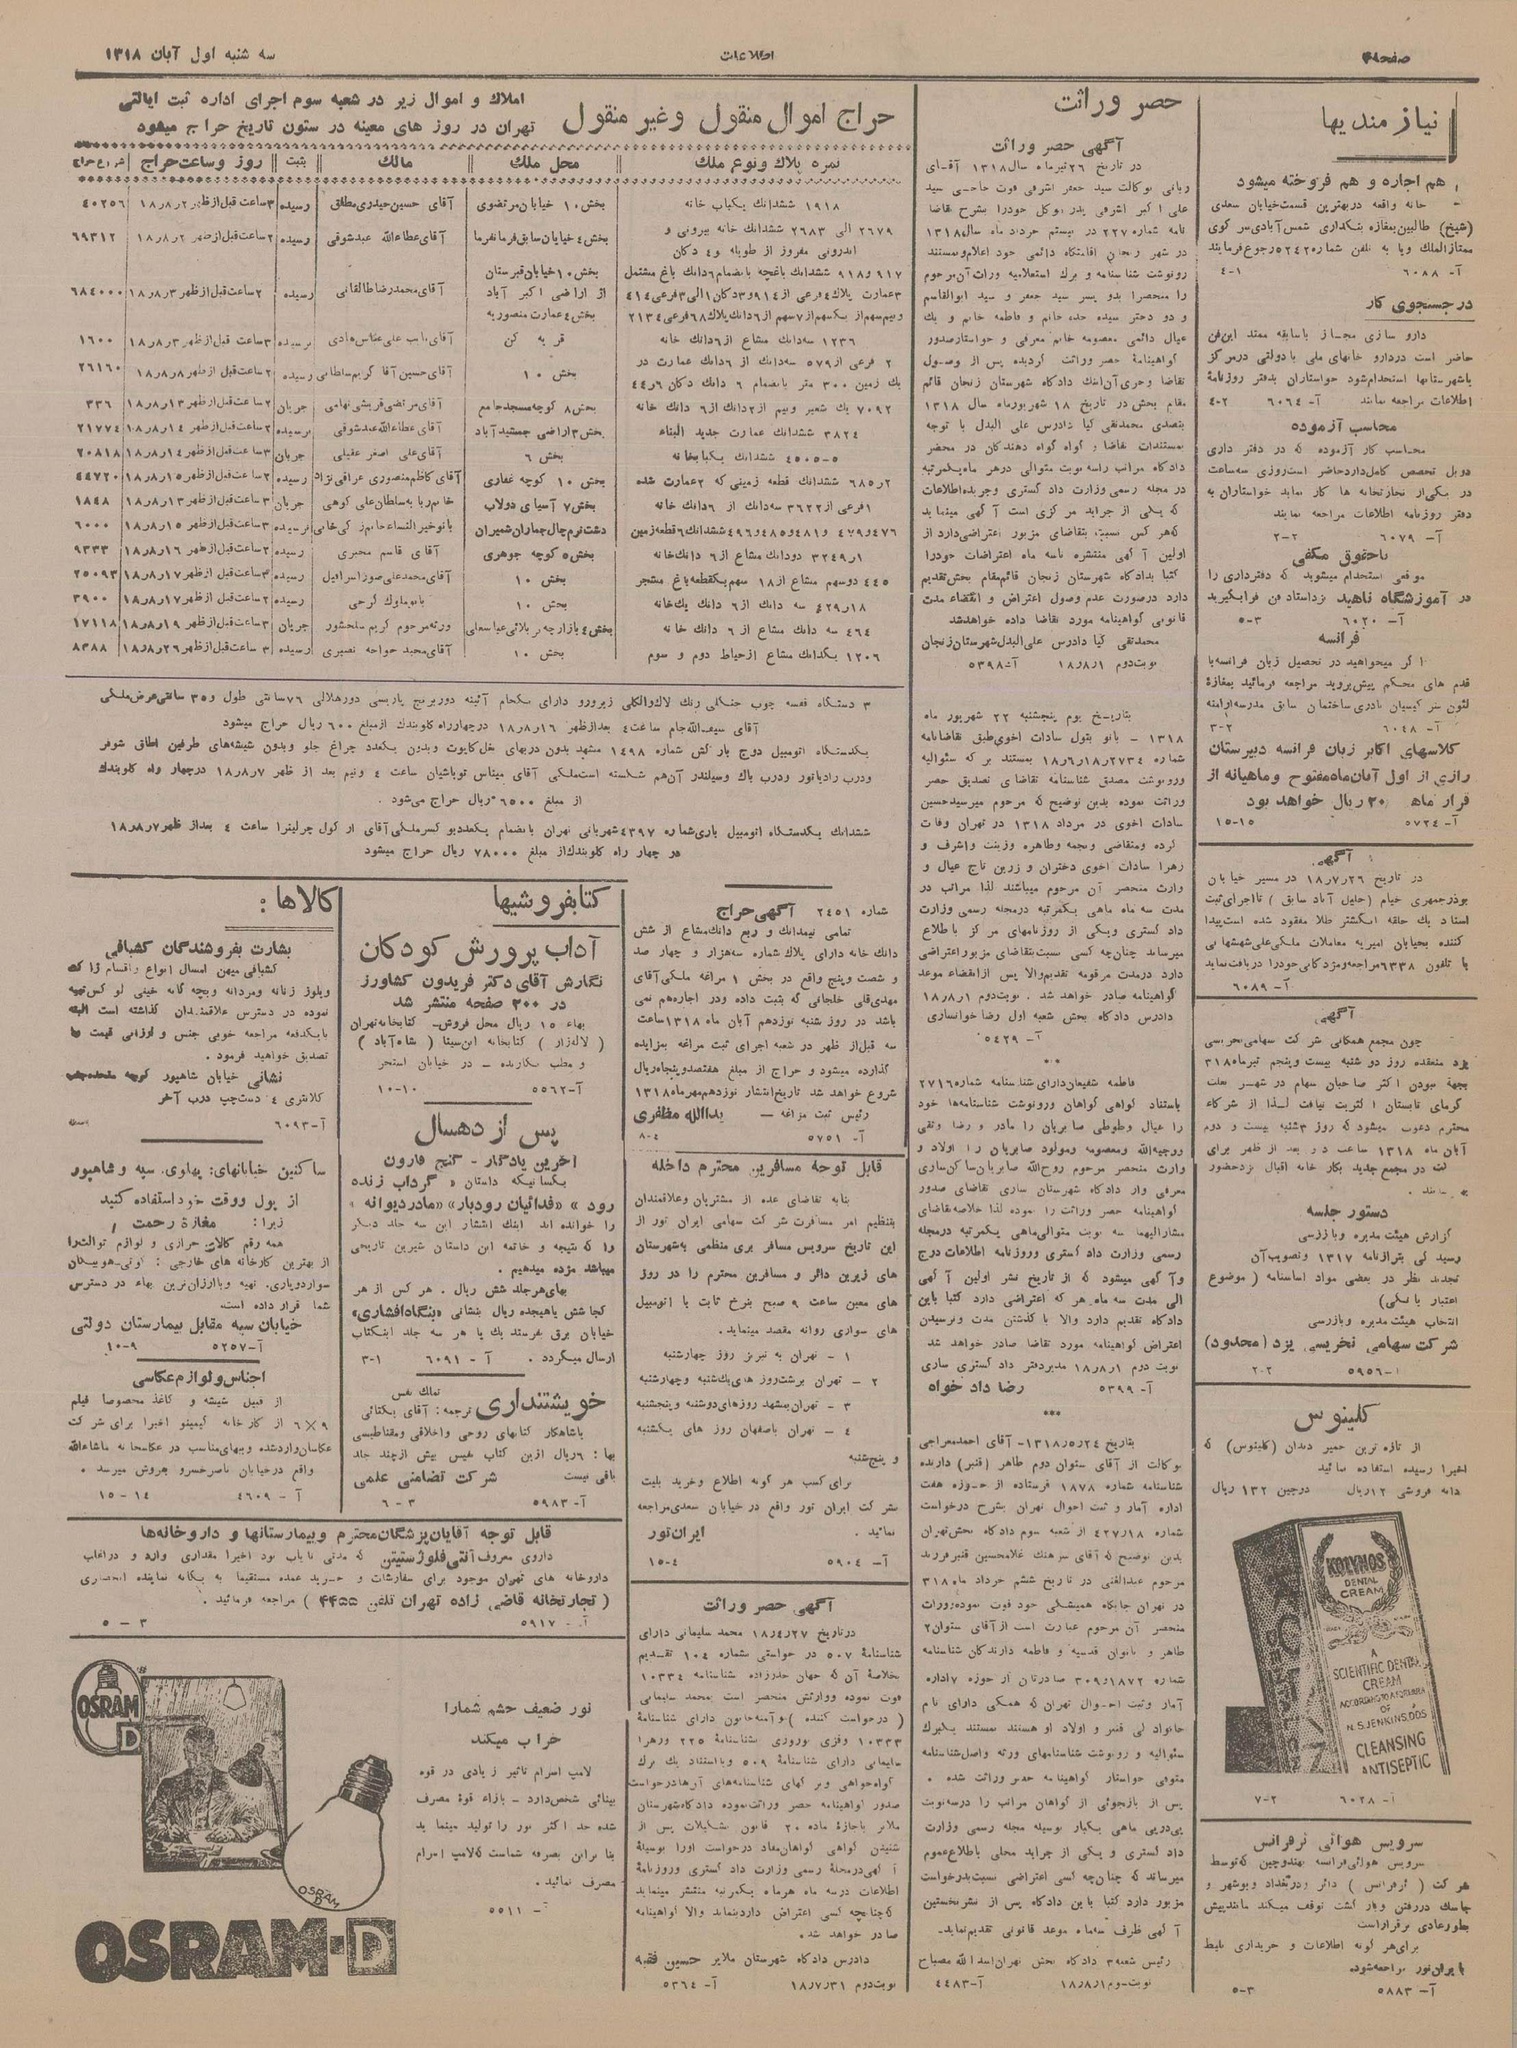 صفحه ۴۸
اطلاعات
سه شنبه اول آبان ۱۳۱۸
نیازمندیها
هم اجاره و هم فروخته میشود
خانه واقعه در بهترین قسمت خیابان سعدی
(شیخ) طالبین بمغازه بنکداری شمس آبادی سر کوی
ممتازالملک ویا به تلفن شماره ۵۲۴۲ رجوع فرمایند
آ- ۶۰۸۸ ۴-۱
در جستجوی کار
دارو سازی مجاز با سابقه ممتد این فن
حاضر است در دارو خانهای ملی یا دولتی در مرکز
یا شهرستانها استخدام شود خواستاران بدفتر روزنامهٔ
اطلاعات مراجعه نمایند آ- ۶۰۶۴ ۴-۲
محاسب آزموده
محاسب کار آزموده که در دفتر داری
دوبل تخصص کامل دارد حاضر است روزی سه ساعت
در یکی از تجارتخانه ها کار نماید خواستاران به
دفتر روزنامه اطلاعات مراجعه نمایند
آ- ۶۰۷۹ ۲-۲
با حقوق مکفی
موقعی استخدام میشوید که دفترداری را
در آموزشگاه ناهید نزد استاد فن فرا بگیرید
آ- ۶۰۲۰ ۵-۳
فرانسه
اگر میخواهید در تحصیل زبان فرانسه با
قدم های محکم پیش بروید مراجعه فرمائید بمغازهٔ
آ- ۶۰۴۸ ۳-۲
کلاسهای اکابر زبان فرانسه دبیرستان
رازی از اول آبان ماه مفتوح و ماهیانه از
قرار ماهی ۲۰ ریال خواهد بود
آ- ۵۷۲۴ ۱۵-۱۵
آگهی
در تاریخ ۱۸ر۷ر۲۶ در مسیر خیابان
بوذرجمهری خیام (جلیل آباد سابق) تا اجرای ثبت
اسناد یک حلقه انگشتر طلا مفقود شده است پیدا
کننده بخیابان امیریه معاملات ملکی علی شهشهانی
با تلفون ۶۳۳۸ مراجعه و مژدگانی خود را دریافت نماید
آ- ۶۰۸۹
آگهی
چون مجمع همگانی شرکت سهامی نخریسی
یزد منعقده روز دو شنبه بیست و پنجم تیر ماه ۳۱۸
بجهة نبودن اکثر صاحبان سهام در شهر بعلت
گرمای تابستان اکثریت نیافت لذا از شرکاء
محترم دعوت میشود که روز ۳شنبه بیست و دوم
آبان ماه ۱۳۱۸ ساعت دو بعد از ظهر برای
دستور جلسه
گزارش هیئت مدیره و بازرسی
رسیدگی بترازنامه ۱۳۱۷ و تصویب آن
تجدید نظر در بعضی مواد اساسنامه (موضوع
اعتبار بانکی)
انتخاب هیئت مدیره و بازرسی
شرکت سهامی نخریسی یزد (محدود)
آ- ۵۹۵۶ ۲-۲
کلینوس
از تازه ترین خمیر دندان (کلینوس) که
اخیرا رسیده استفاده نمائید
دانه فروشی ۱۲ ریال دوجین ۱۳۲ ریال
KOLYNOS
DENTAL
CREAM
A
SCIENTIFIC DENTAL
CREAM
ACCORDING TO A FORMULA
OF
N.S.JENKINS,DDS
CLEANSING
ANTISEPTIC
آ- ۶۰۲۸ ۷-۲
سرویس هوائی ارفرانس
سرویس هوائی فرانسه بهندوچین که توسط
شرکت (ارفرانس) دائر و در بغداد و بوشهر و
جاسک در رفتن و باز گشت توقف میکند مانند پیش
بطور عادی برقرار است
برای هر گونه اطلاعات و خریداری بلیط
با ایران تور مراجعه شود.
آ- ۵۸۸۳ ۵-۳
حصر وراثت
آگهی حصر وراثت
در تاریخ ۲۶ تیر ماه سال ۱۳۱۸ آقای
ربانی بوکالت سید جعفر اشرفی فوت حاجی سید
علی اکبر اشرفی پدر موکل خود را بشرح تقاضا
نامه شماره ۲۲۷ در بیستم خرداد ماه سال ۱۳۱۸
در شهر زنجان اقامتگاه دائمی خود اعلام و مستند
رونوشت شناسنامه و برگ استعلامیه وراث آن مرحوم
را منحصرا بدو پسر سید جعفر و سید ابوالقاسم
عیال دائمی معصومه خانم معرفی و خواستار صدور
گواهینامهٔ حصر وراثت گردیده پس از وصول
تقاضا و جری آن اینک دادگاه شهرستان زنجان قائم
مقام بخش در تاریخ ۱۸ شهریور ماه سال ۱۳۱۸
بتصدی محمدتقی کیا دادرس علی البدل با توجه
بمستندات تقاضا و گواه گواه دهندگان در محضر
دادگاه مراتب را سه نوبت متوالی در هر ماه یکمرتبه
در مجله رسمی وزارت دادگستری و جریده اطلاعات
که یکی از جراید مرکزی است آگهی مینماید
که هر کس نسبت بتقاضای مزبور اعتراضی دارد از
اولین آگهی منتشره تا سه ماه اعتراضات خود را
کتبا بدادگاه شهرستان زنجان قائم مقام بخش تقدیم
دارد در صورت عدم وصول اعتراض و انقضاء مدت
قانونی گواهینامه مورد تقاضا داده خواهد شد
محمدتقی کیا دادرس علی البدل شهرستان زنجان
نوبت دوم ۱۸ر۸ر۱ آ- ۵۳۹۸
بتاریخ یوم پنجشنبه ۲۲ شهریور ماه
۱۳۱۸ - بانو بتول سادات اخوی طبق تقاضانامه
شماره ۲۷۳۴ر۱۸ر۶ر۱۸ بمستند برگه سئوالیه
و رونوشت مصدق شناسنامه تقاضای تصدیق حصر
وراثت نموده بدین توضیح که مرحوم میر سید حسین
سادات اخوی در مرداد ۱۳۱۸ در تهران وفات
کرده و متقاضی و نجمه و طاهره وزینت و اشرف و
زهرا سادات اخوی دختران و زرین تاج عیال و
وارث منحصر آن مرحوم میباشند لذا مراتب در
مدت سه ماه ماهی یکمرتبه در مجله رسمی وزارت
داد گستری و یکی از روزنامهای مرکز با طلاع
میرساند چنانچه کسی نسبت بتقاضای مزبور اعتراضی
دارد در مدت مرقومه تقدیم والا پس از انقضاء موعد
گواهینامه صادر خواهد شد . نوبت دوم ۱۸ر۸ر۱
دادرس دادگاه بخش شعبه اول رضا خوانساری
آ- ۵۴۲۹
فاطمه شفیعان دارای شناسنامه شماره ۲۷۱۶
باستناد گواهی گواهان و رونوشت شناسنامه ها خود
را عیال و طوطی صابریان را مادر و رضا و تقی
و روحیه الله و معصومه و مولود صابریان را اولاد و
وارث منحصر مرحوم روح الله صابریان ساکن ساری
معرفی و از دادگاه شهرستان ساری تقاضای صدور
گواهینامه حصر وراثت را نموده لذا خلاصه تقاضای
مشارالیها سه نوبت متوالی ماهی یکمرتبه در مجله
رسمی وزارت دادگستری و روزنامه اطلاعات درج
و آگهی میشود که از تاریخ نشر اولین آگهی
الی مدت سه ماه هر که اعتراضی دارد کتبا باین
دادگاه تقدیم دارد والا با گذشتن مدت و نرسیدن
اعتراض گواهینامه مورد تقاضا صادر خواهد شد
نوبت دوم ۱۸ر۸ر۱ مدیر دفتر دادگستری ساری
آ- ۵۳۹۹ رضا داد خواه
بتاریخ ۱۳۱۸ر۵ر۲۴- آقای احمد معراجی
بوکالت از آقای ستوان دوم طاهر (قنبر) دارنده
شناسنامه شماره ۱۸۷۸ فرستاده از حوزه هفت
اداره آمار و ثبت احوال تهران بشرح درخواست
شماره ۴۲۷ر۱۸ از شعبه سوم دادگاه بخش تهران
بدین توضیح که آقای سرهنگ غلامحسین قنبر فرزند
مرحوم عبدالغنی در تاریخ ششم خرداد ماه ۳۱۸
در تهران جایگاه همیشگی خود فوت نموده و وراث
منحصر آن مرحوم عبارت است از آقای ستوان ۲
طاهر و بانوان قدسیه و فاطمه دارندگان شناسنامه
شماره ۱۸۷۲ و ۳۰۹ صادرتان از حوزه ۷ اداره
آمار و ثبت احوال تهران که همگی دارای نام
خانوادگی قنبر و اولاد او هستند بمستند یکبرگ
سئوالیه و رونوشت شناسنامهای ورثه و اصل شناسنامه
متوفی خواستار گواهینامه حصر وراثت شده .
پس از بازجوئی از گواهان مراتب را در سه نوبت
پی در پی ماهی یکبار بوسیله مجله رسمی وزارت
دادگستری و یکی از جراید محلی باطلاع عموم
میرساند که چنانچه کسی اعتراضی نسبت بدرخواست
مزبور دارد کتبا باین دادگاه پس از نشر نخستین
آگهی ظرف سه ماه موعد قانونی تقدیم نماید.
رئیس شعبه ۳ دادگاه بخش تهران اسدالله مصباح
نوبت دوم ۱۸ر۸ر۱ آ- ۴۴۸۳
حراج اموال منقول وغیر منقول
املاک و اموال زیر در شعبه سوم اجرای اداره ثبت ایالتی
تهران در روز های معینه در ستون تاریخ حراج میشود
نمره پلاک و نوع ملک محل ملک مالک بثبت روز وساعت حراج شروع حراج
۱۹۱۸ ششدانک یکباب خانه بخش ۱۰ خیابان مرتضوی آقای حسین حیدری مطلق رسیده ۳ ساعت قبل از ظهر ۱۸ر۸ر۲ ۴۰۲۵۶
۲۶۷۹ الی ۲۶۸۳ ششدانک خانه بیرونی و بخش ۴ خیابان سابق فرمانفرما آقای عطاءالله عبدشوقی رسیده ۲ ساعت قبل از ظهر ۱۸ر۸ر۲ ۶۹۳۱۲
اندرونی مفروز از طویله و ۴ دکان
۹۱۷ و ۹۱۸ ششدانک باغچه بانضمام ۶ دانک باغ مشتمل بخش ۱۰ خیابان قبرستان
۳ عمارت پلاک ۴ فرعی از ۹۱۴ و ۳ دکان ۱ الی ۳ فرعی ۴۱۴ از اراضی اکبر آباد آقای محمدرضا طالقانی رسیده ۲ ساعت قبل از ظهر ۱۸ر۸ر۳ ۶۸۴۰۰۰
ونیم سهم از یکسهم از ۷ سهم از ۶ دانک پلاک ۶۸ فرعی ۲۱۳۴ بخش ۴ عمارت منصوریه
۱۲۳۶ سه دانک مشاع از ۶ دانک خانه قریه کن نرسیده ۳ ساعت قبل از ظهر ۱۸ر۸ر۳ ۱۶۰۰
۲ فرعی از ۵۷۹ سه دانک از ۶ دانک عمارت در
یک زمین ۳۰۰ متر بانضمام ۶ دانک دکان ۶ر۴۴ بخش ۱۰ آقای حسین آقا کریم سلطانی رسیده ۲ ساعت قبل از ظهر ۱۸ر۸ر۸ ۲۶۱۶۰
۷۰۹۲ یک شعیر ونیم از ۲ دانک از ۶ دانک خانه بخش ۸ کوچه مسجد جامع آقای مرتضی قریشی نهامی جریان ۲ ساعت قبل از ظهر ۱۸ر۸ر۱۳ ۳۳۶
۳۸۲۴ ششدانک عمارت جدید البناء بخش ۳ اراضی جمشید آباد آقای عطاءالله عبدشوقی نرسیده ۲ ساعت قبل از ظهر ۱۸ر۸ر۱۴ ۲۱۷۷۴
۴۰۰۵-۵ ششدانک یکباب خانه بخش ۶ آقای علی اصغر عقیلی جریان ۳ ساعت قبل از ظهر ۱۸ر۸ر۱۴ ۲۰۸۱۸
۲ر۶۸۵ ششدانک قطعه زمینی که ۲ عمارت شده بخش ۱۰ کوچه غفاری آقای کاظم منصوری عراقی نژاد رسیده ۲ ساعت قبل از ظهر ۱۸ر۸ر۱۵ ۴۴۷۲۰
۱ فرعی از ۳۶۲۲ سه دانک از ۶ دانک خانه بخش ۷ آسیای دولاب جریان ۳ ساعت قبل از ظهر ۱۸ر۸ر۱۳ ۱۸۴۸
۴۷۶ و ۴۷۹ و ۴۸۱ و ۴۸۵ و ۴۹۶ ششدانک ۶ قطعه زمین دشت نرم چال جماران شمیران نرسیده ۳ ساعت قبل از ظهر ۱۸ر۸ر۱۵ ۶۰۰۰
۱ر۳۲۴۹ دو دانک مشاع از ۶ دانک خانه بخش ۵ کوچه جوهری آقای قاسم مخبری رسیده ۲ ساعت قبل از ظهر ۱۸ر۸ر۱۶ ۹۳۳۳
۴۴۵ دو سهم مشاع از ۱۸ سهم یکقطعه باغ مشجر بخش ۱۰ آقای محمد علی صور اسرافیل رسیده ۳ ساعت قبل از ظهر ۱۸ر۸ر۱۷ ۲۵۰۹۳
۱۸ر۴۲۹ سه دانک از ۶ دانک یک خانه بخش ۱۰ بانو ملوک کرجی رسیده ۲ ساعت قبل از ظهر ۱۸ر۸ر۱۷ ۳۹۰۰
۴۶۴ سه دانک مشاع از ۶ دانک خانه بخش ۴ ورثه مرحوم کریم سلحشور جریان ۳ ساعت قبل از ظهر ۱۸ر۸ر۱۹ ۱۷۱۱۸
۱۲۰۶ یکدانک مشاع از حیاط دوم و سوم بخش ۱۰ آقای محمد خواجه نصیری رسیده ۳ ساعت قبل از ظهر ۱۸ر۸ر۲۶ ۸۳۸۸
۳ دستگاه قفسه چوب جنگلی رنک لاک والکلی زیر و رو دارای سه جام آئینه دور برنج پاریسی دور هلالی ۷۶ سانتی طول و ۳۵ سانتی عرض ملکی
آقای سیف الله جام ساعت ۴ بعد از ظهر ۱۸ر۸ر۱۶ در چهار راه کلوبندک از مبلغ ۶۰۰ ریال حراج میشود
یکدستگاه اتومبیل دوج بارکش شماره ۱۴۹۸ مشهد بدون دربهای بغل کاپوت و بدون یکعدد چراغ جلو و بدون شیشه های طرفین اطاق شوفر
و درب رادیاتور و درب باک و سیلندر آن هم شکسته است ملکی آقای میناس توباشیان ساعت ۴ ونیم بعد از ظهر ۱۸ر۸ر۷ در چهار راه کلوبندک
از مبلغ ۶۵۰۰ ریال حراج میشود .
ششدانک یکدستگاه اتومبیل باری شماره ۴۳۹۷ شهربانی تهران بانضمام یکعدد بوکسر ملکی آقای ارکول چرلینرا ساعت ۴ بعد از ظهر ۱۸ر۸ر۷
در چهار راه کلوبندک از مبلغ ۷۸۰۰۰ ریال حراج میشود
شماره ۲۴۵۱ آگهی حراج
تمامی نیمدانک و ربع دانک مشاع از شش
دانک خانه دارای پلاک شماره سه هزار و چهار صد
و شصت و پنج واقع در بخش ۱ مراغه ملکی آقای
مهدی قلی خلجانی که بثبت داده ودر اجاره هم نمی
باشد در روز شنبه نوزدهم آبان ماه ۱۳۱۸ ساعت
سه قبل از ظهر در شعبه اجرای ثبت مراغه بمزایده
گذارده میشود و حراج از مبلغ هفتصد و پنجاه ریال
شروع خواهد شد تاریخ انتشار نوزدهم مهر ماه ۱۳۱۸
رئیس ثبت مراغه - یدالله مظفری
آ- ۵۷۵۱ ۸-۴
قابل توجه مسافرین محترم داخله
بنابه تقاضای عده از مشتریان و علاقمندان
بتنظیم امر مسافرت شرکت سهامی ایران تور از
این تاریخ سرویس مسافر بری منظمی به شهرستان
های زیرین دائر و مسافرین محترم را در روز
های معین ساعت ۹ صبح بنرخ ثابت با اتومبیل
های سواری روانه مقصد مینماید.
۱ - تهران به تبریز روز چهارشنبه
۲ - تهران برشت روز های یکشنبه و چهارشنبه
۳ - تهران بمشهد روزهای دوشنبه و پنجشنبه
۴ - تهران باصفهان روز های یکشنبه
و پنجشنبه
برای کسب هر گونه اطلاع و خرید بلیت
بشرکت ایران تور واقع در خیابان سعدی مراجعه
نمائید . ایران تور
آ- ۵۹۰۴ ۱۵-۴
آگهی حصر وراثت
در تاریخ ۱۸ر۴ر۲۷ محمد سلیمانی دارای
شناسنامهٔ ۵۰۷ در خواستی بشماره ۱۰۴ تقدیم
فوت نموده ووارثش منحصر است بمحمد سلیمانی
شنیدن گواهی گواهان مفاد درخواست او را بوسیلهٔ
آگهی در مجلهٔ رسمی وزارت دادگستری و روزنامهٔ
اطلاعات در سه ماه هر ماه یکمرتبه منتشر مینماید
که چنانچه کسی اعتراض دارد بنماید والا گواهینامه
صادر خواهد شد.
دادرس دادگاه شهرستان ملایر حسین فقیه
نوبت دوم ۱۸ر۷ر۳۱ آ- ۵۳۶۴
کتابفروشیها
آداب پرورش کودکان
نگارش آقای دکتر فریدون کشاورز
در ۳۰۰ صفحه منتشر شد
بهاء ۱۵ ریال محل فروش- کتابخانه تهران
(لاله زار) کتابخانه ابن سینا (شاه آباد)
و مطب نگارنده - در خیابان استخر
آ- ۵۵۶۲ ۱۰-۱۰
پس از دهسال
آخرین یادگار - گنج قارون
بکسانیکه داستان « گرداب زنده
رود » «فدائیان رودبار» «مادر دیوانه»
را خوانده اند اینک انتشار این سه جلد دیگر
را که نتیجه و خاتمه این داستان شیرین تاریخی
میباشد مژده میدهیم .
بهای هر جلد شش ریال . هر کس از هر
کجا شش یا هیجده ریال بنشانی «بنگاه افشاری»
خیابان برق بفرستد یک یا هر سه جلد این کتاب
ارسال میگردد . آ- ۶۰۹۱ ۳-۱
خویشتنداری
تملک نفس
ترجمه : آقای یکتائی
یا شاهکار کتابهای روحی و اخلاقی و مغناطیسی
بها : ۶ ریال ازین کتاب نفیس بیش از چند جلد
باقی نیست شرکت تضامنی علمی
آ- ۵۹۸۳ ۶-۳
کالاها :
بشارت بفروشندگان کشبافی
کشبافی میهن امسال انواع و اقسام ژاکت
وپلوور زنانه و مردانه و بچه گانه خیلی لوکس تهیه
نموده در دسترس علاقمندان گذاشته است البته
با یکدفعه مراجعه خوبی جنس و ارزانی قیمت ها
تصدیق خواهید فرمود .
کلانتری ۴ دست چپ درب آخر
آ- ۶۰۹۳
ساکنین خیابانهای: پهلوی، سپه و شاهپور
از پول و وقت خود استفاده کنید
زیرا : مغازهٔ رحمت
همه رقم کالای خرازی و لوازم توالت را
از بهترین کارخانه های خارجی : کوتی، هوبیگان
سوار دپاری، تهیه و باارزان ترین بهاء در دسترس
شما قرار داده است.
خیابان سپه مقابل بیمارستان دولتی
آ- ۵۲۵۷ ۱۰-۹
اجناس و لوازم عکاسی
از قبیل شیشه و کاغذ مخصوصا فیلم
۶×۹ از کارخانه گیمینو اخیرا برای شرکت
عکاسان وارد شده و ببهای مناسب در عکاسخانه ماشاءالله
واقع در خیابان ناصر خسرو بفروش میرسد .
آ- ۴۶۰۹ ۱۵-۱۴
قابل توجه آقایان پزشگان محترم و بیمارستانها و داروخانه ها
داروی معروف آنتی فلوژستین که مدتی نایاب بود اخیرا مقداری وارد و در اغلب
داروخانه های تهران موجود برای سفارشات و خرید عمده مستقیما به یگانه نماینده انحصاری
( تجارتخانه قاضی زاده تهران تلفن ۴۴۵۵ ) مراجعه فرمائید .
آ- ۵۹۱۷ ۵-۳
نور ضعیف چشم شما را
خراب میکند
لامپ اسرام تاثیر زیادی در قوه
بینائی شخص دارد - بازاء قوهٔ مصرف
شده حد اکثر نور را تولید مینماید
بنا براین بصرفه شماست که لامپ اسرام
مصرف نمائید .
آ- ۵۵۱۱
OSRAM
D
OSRAM
D
OSRAM-D